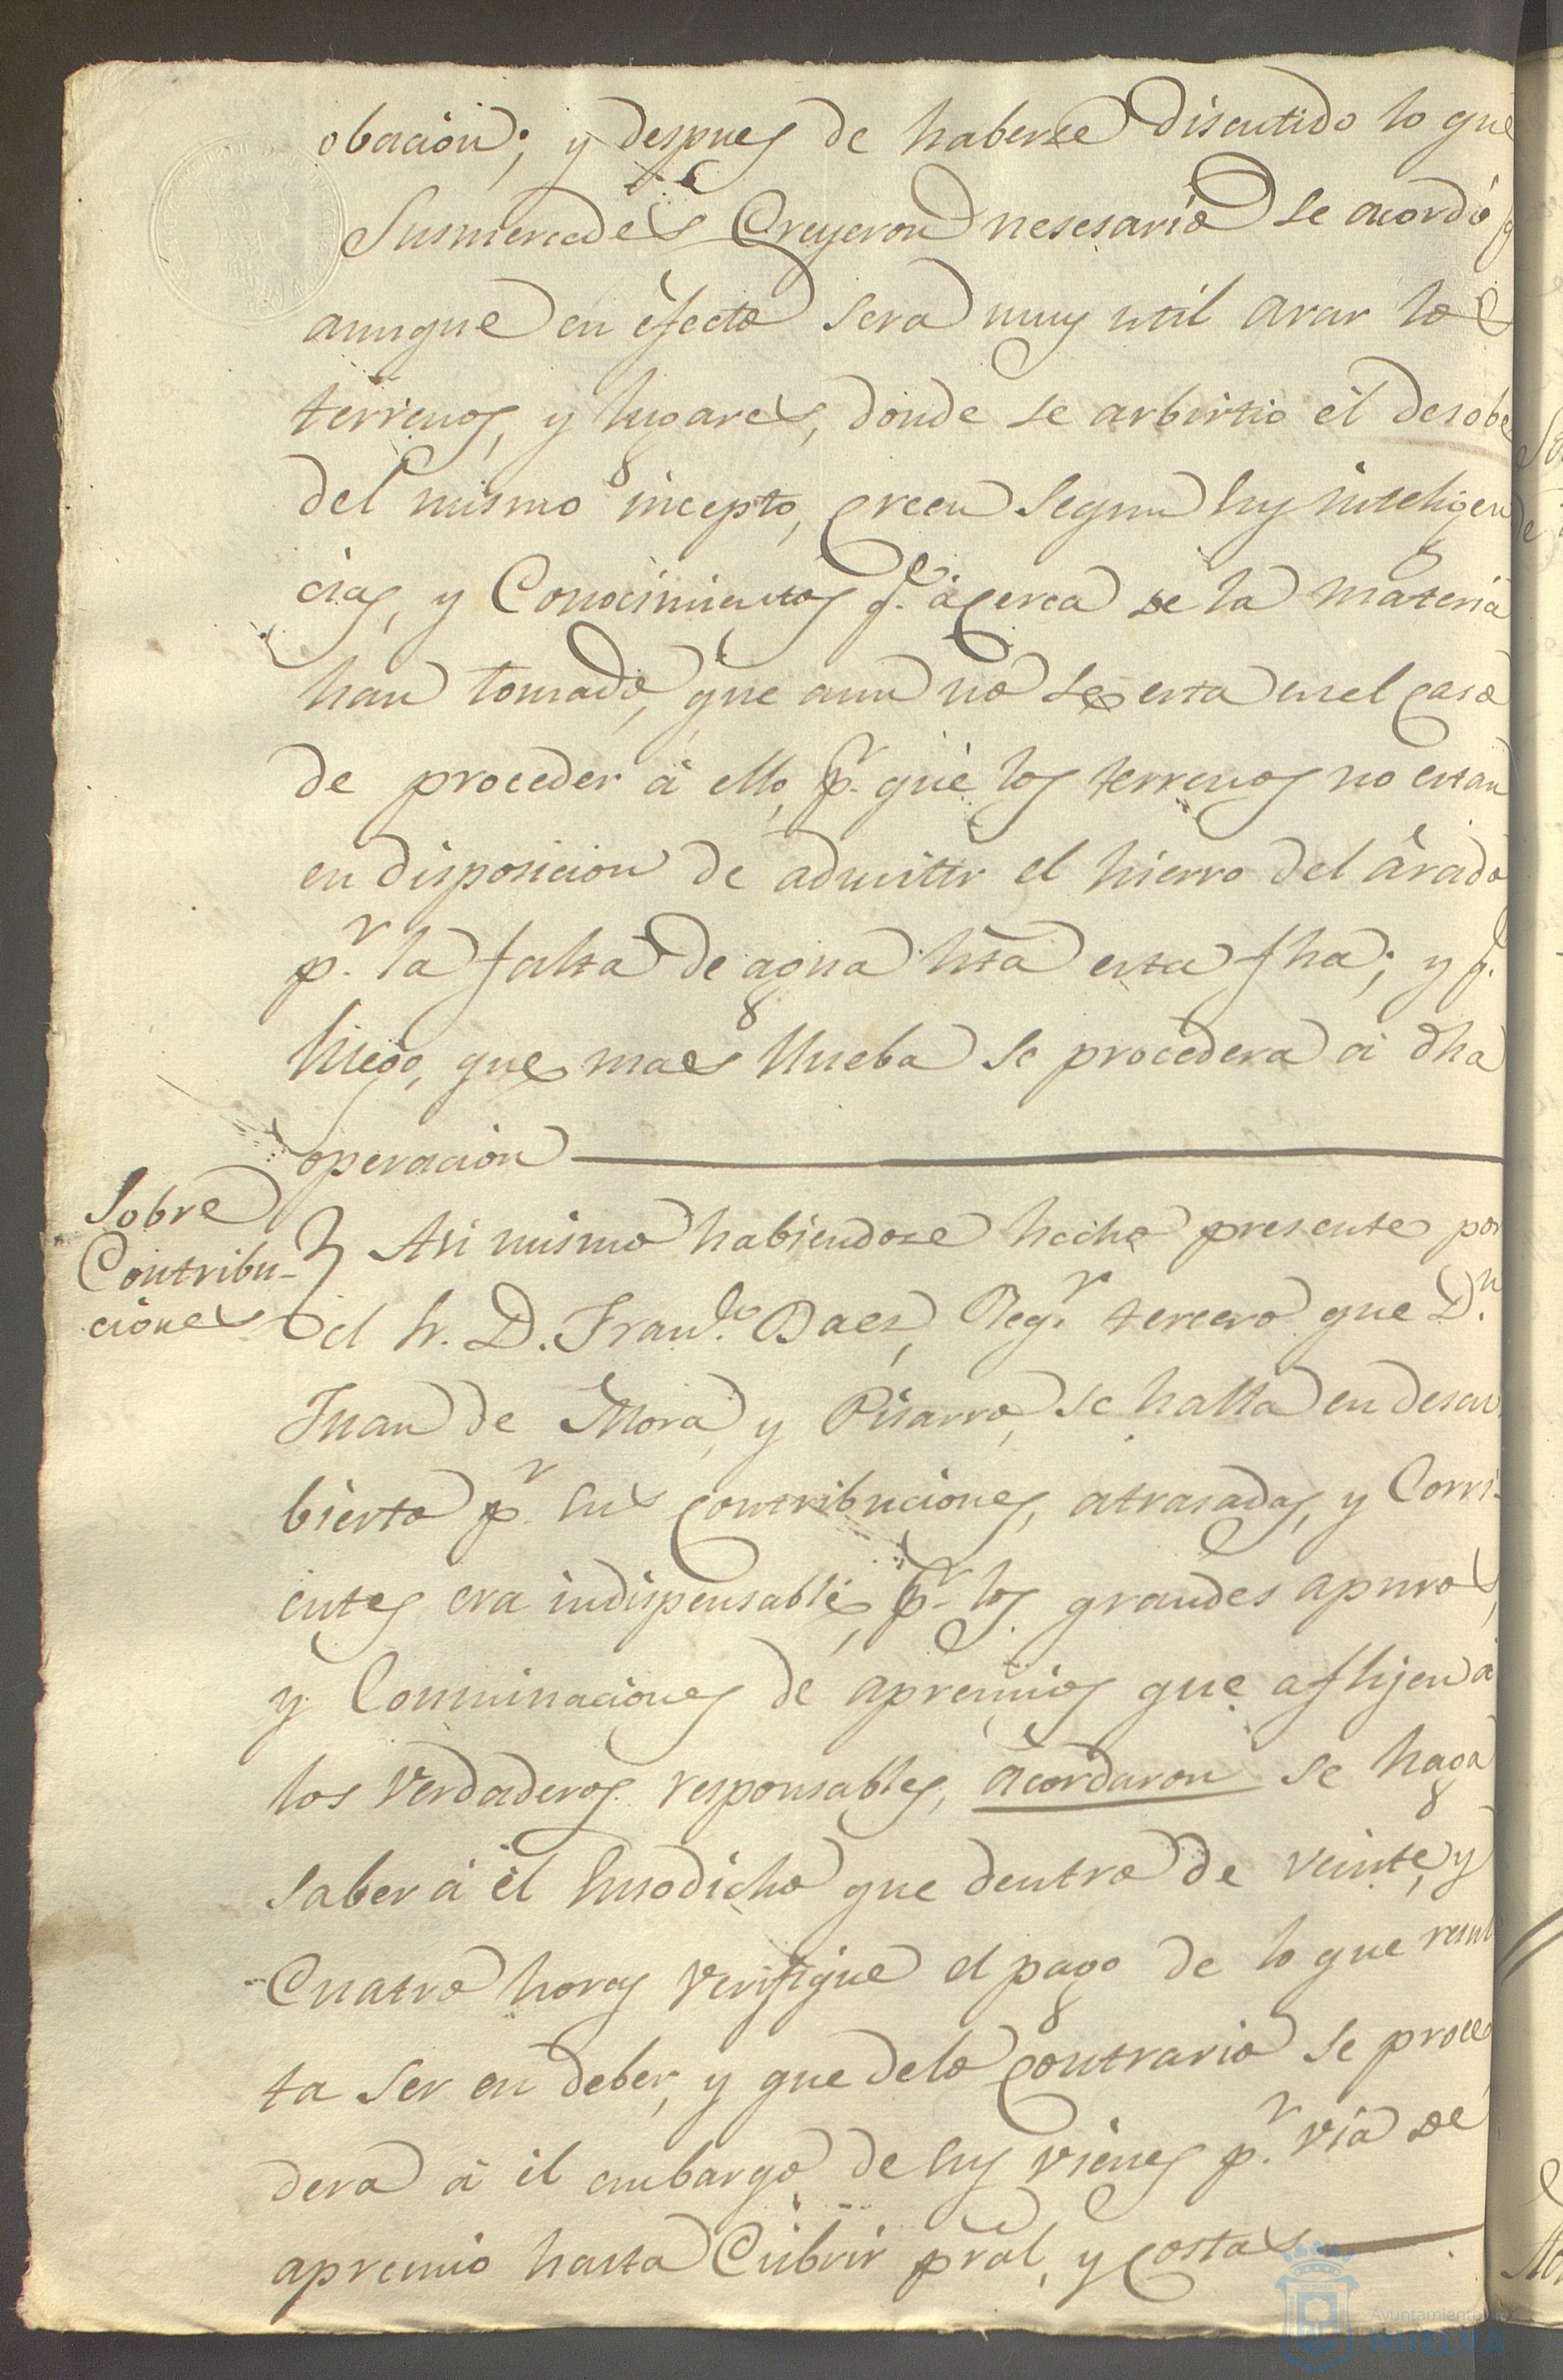 obacion; y despues de haberse discutido lo que
Susmercedes Creyeron nesesario se acordó q
aunque en efecto sera muy util arar los
terrenos, y lugares, donde se arbirtio el desobe
del mismo incepto, creen segun sus inteligen
cias, y Conocimientos q.e acerca de la materia
han tomado, que aun no se esta en el caso
de proceder á ello, p.r que los terrenos no estan
en disposicion de admitir el hierro del arado
p.r la falta de agua hta esta fha; y q.e
luego, que mas llueba se procedera á dha
operacion
Sobre
Contribu-
ciones
Asi mismo habiendose hecho presente por
el Sr. D. Fran.co Baez, Reg.r tercero que D.n
Juan de Mora, y Pisarro, se halla en descu
bierto p.r sus contribuciones, atrasadas, y Corri-
entes era indispensable, p.r los grandes apuros,
y Comminaciones de apremios que aflijen á
los verdaderos responsables, acordaron se haga
saber á el susodicho que dentro de veinte, y
Cuatro horas verifique el pago de lo que resul
ta ser en deber, y que delo contrario se proce
dera á el embargo de sus vienes p.r via de
apremio hasta Cubrir pral, y costas
Ayuntamiento de
HUELVA